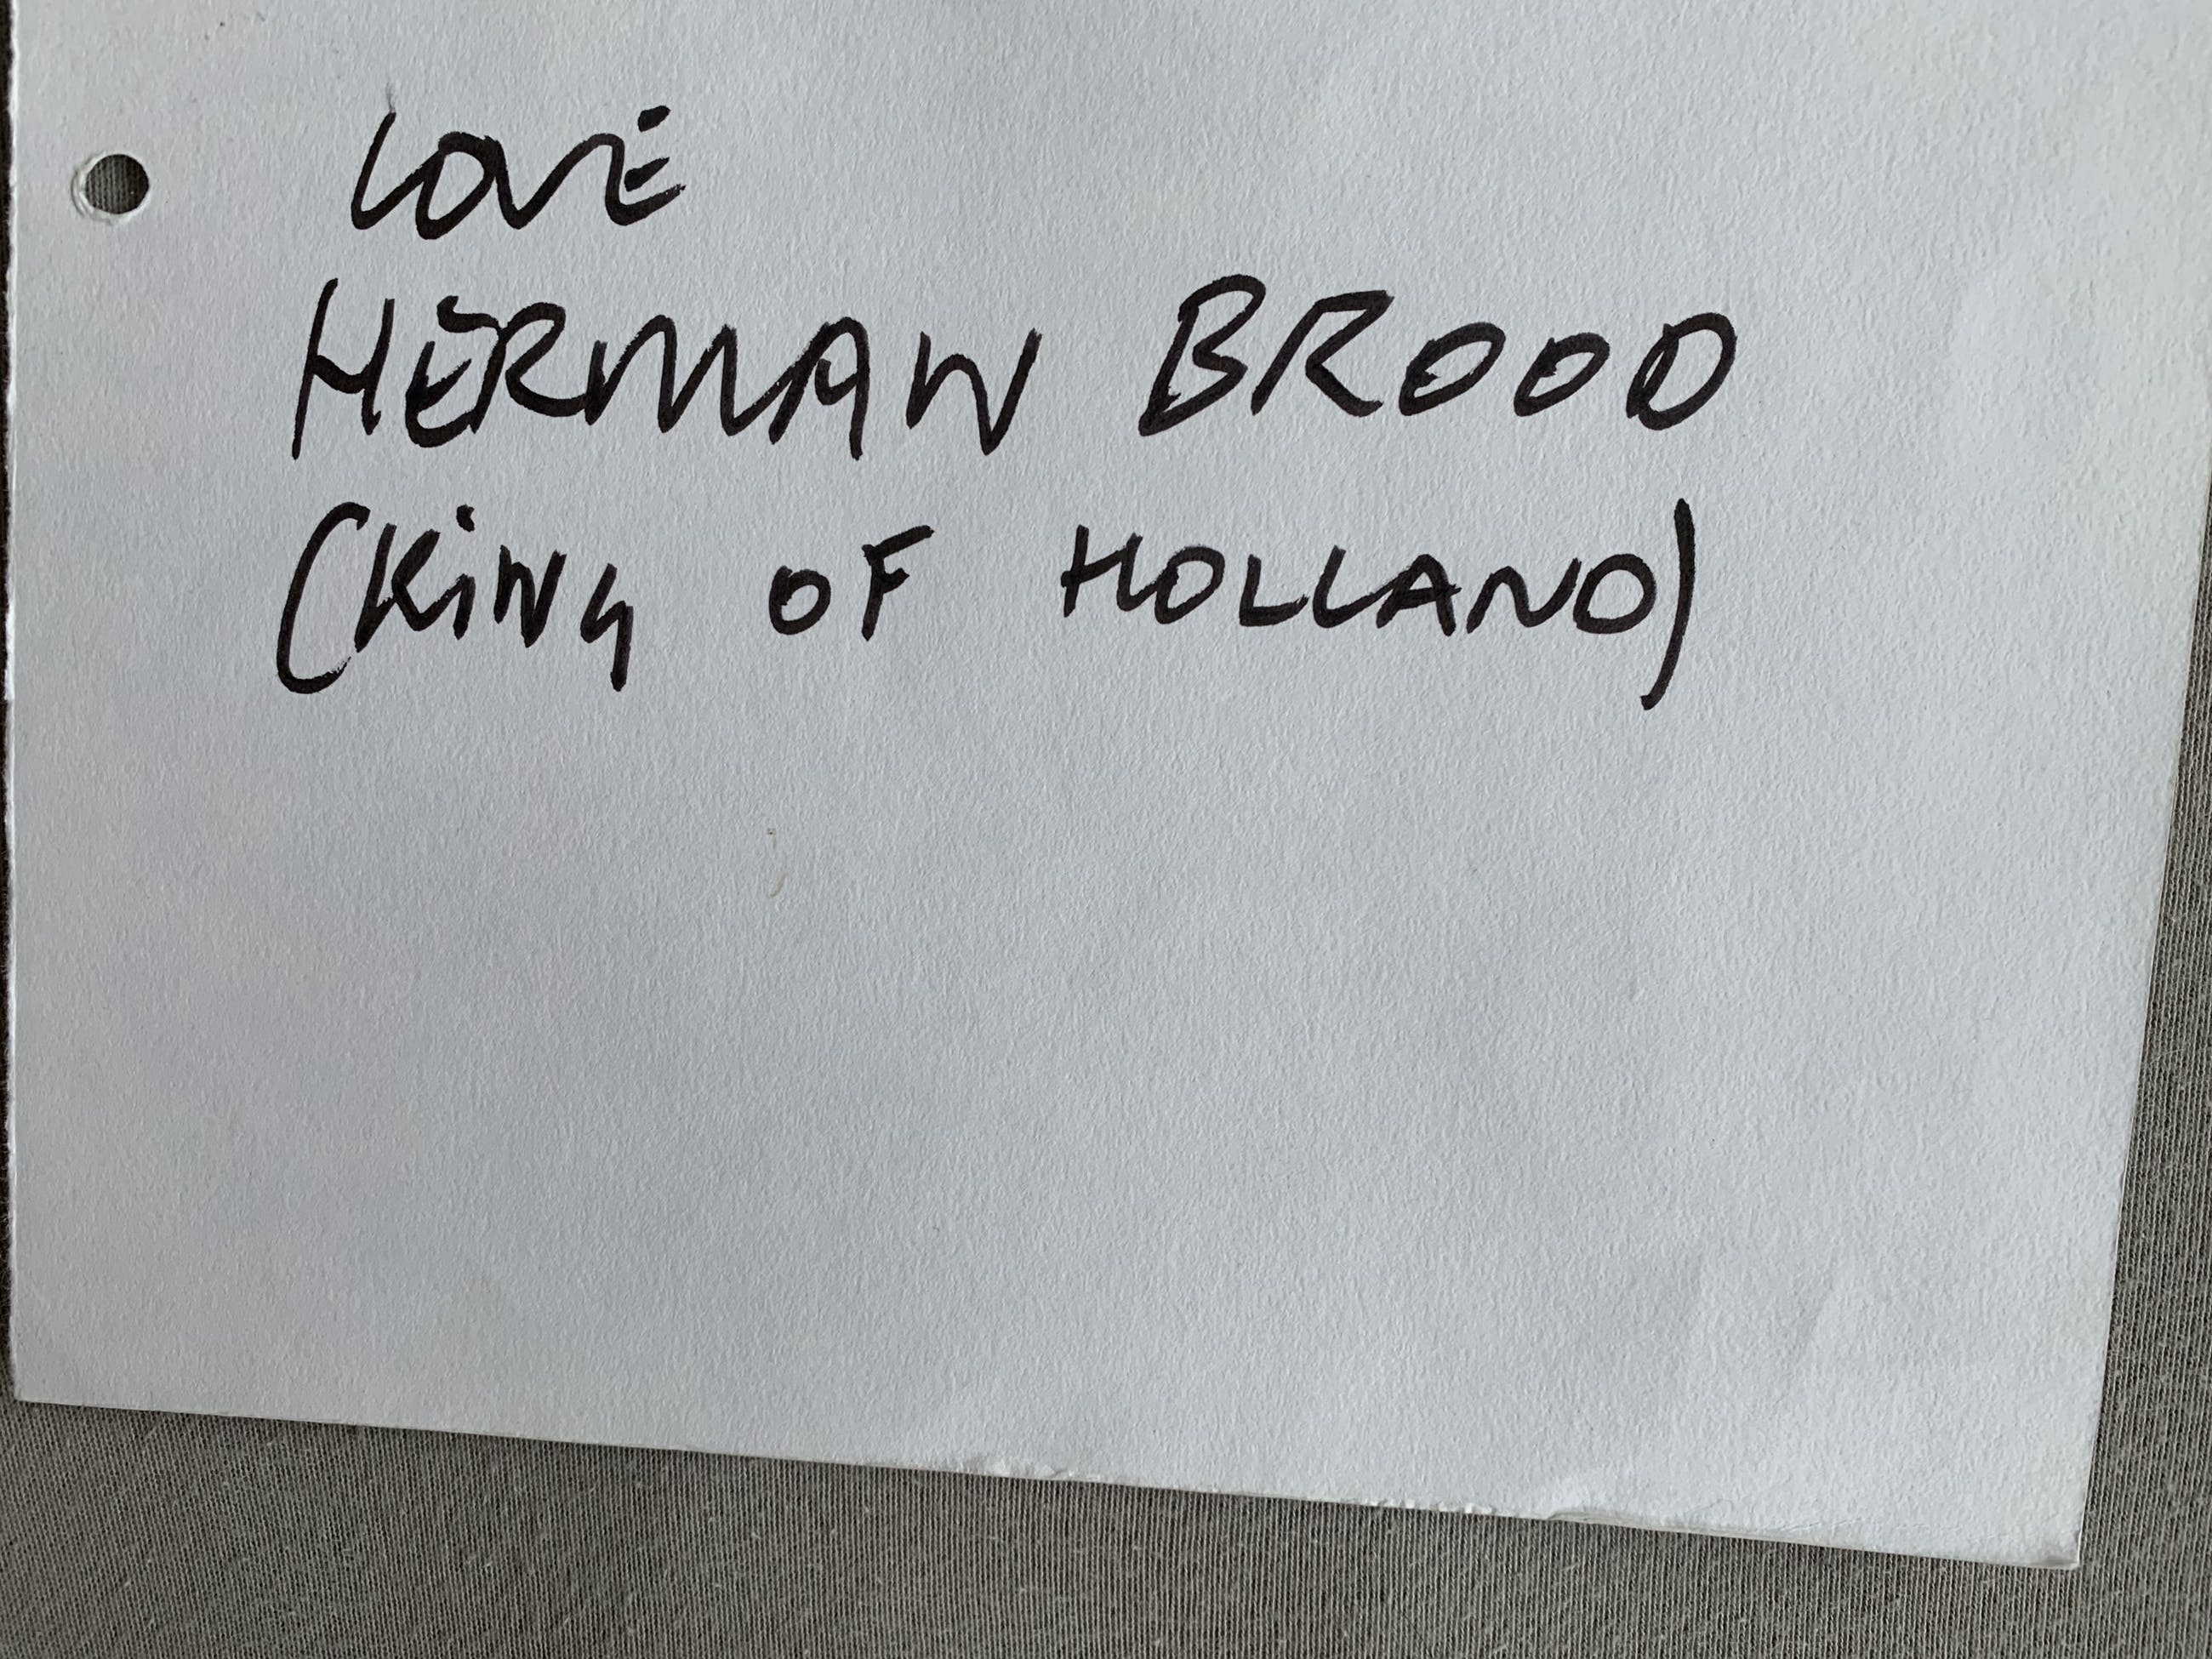 LOVE
HERMAN BROOD
(KiNG OF HOLLAND)